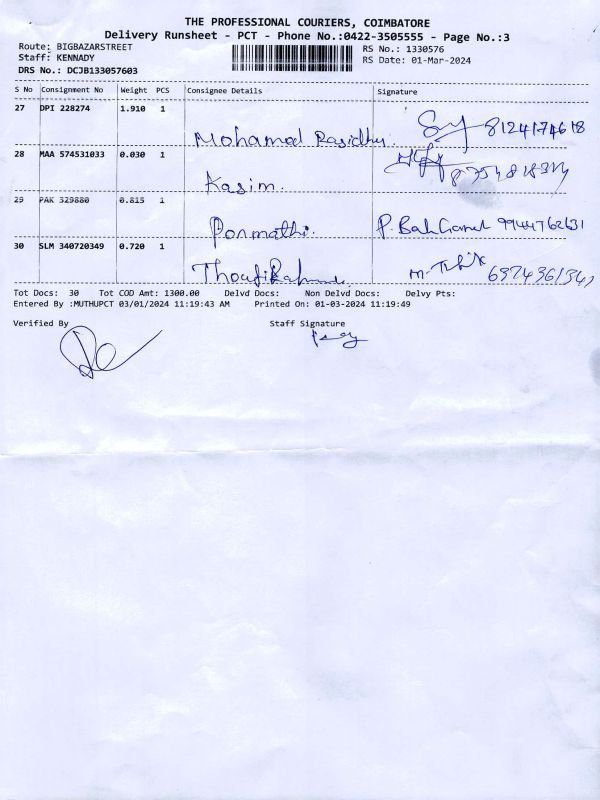 THE PROFESSIONAL COURIERS, COIMBATORE
Delivery Runsheet - PCT - Phone No.:0422-3505555 - Page No.:3
Route: BIGBAZARSTREET
Staff: KENNADY
DRS No.: DCJB133057603
RS No.: 1330576
RS Date: 01-Mar-2024
S No Consignment No Weight PCS Consignee Details Signature
27 DPI 228274 1.910 1
Mohamed Rasidhu. 8124174618
28 MAA 574531033 0.030 1
Kasim.
29 PAK 329880 0.815 1
Ponmathi. 9944762631
30 SLM 340720349 0.720 1
Tot Docs: 30 Tot COD Amt: 1300.00 Delvd Docs: Non Delvd Docs: Delvy Pts:
Entered By :MUTHUPCT 03/01/2024 11:19:43 AM Printed On: 01-03-2024 11:19:49
Verified By Staff Signature